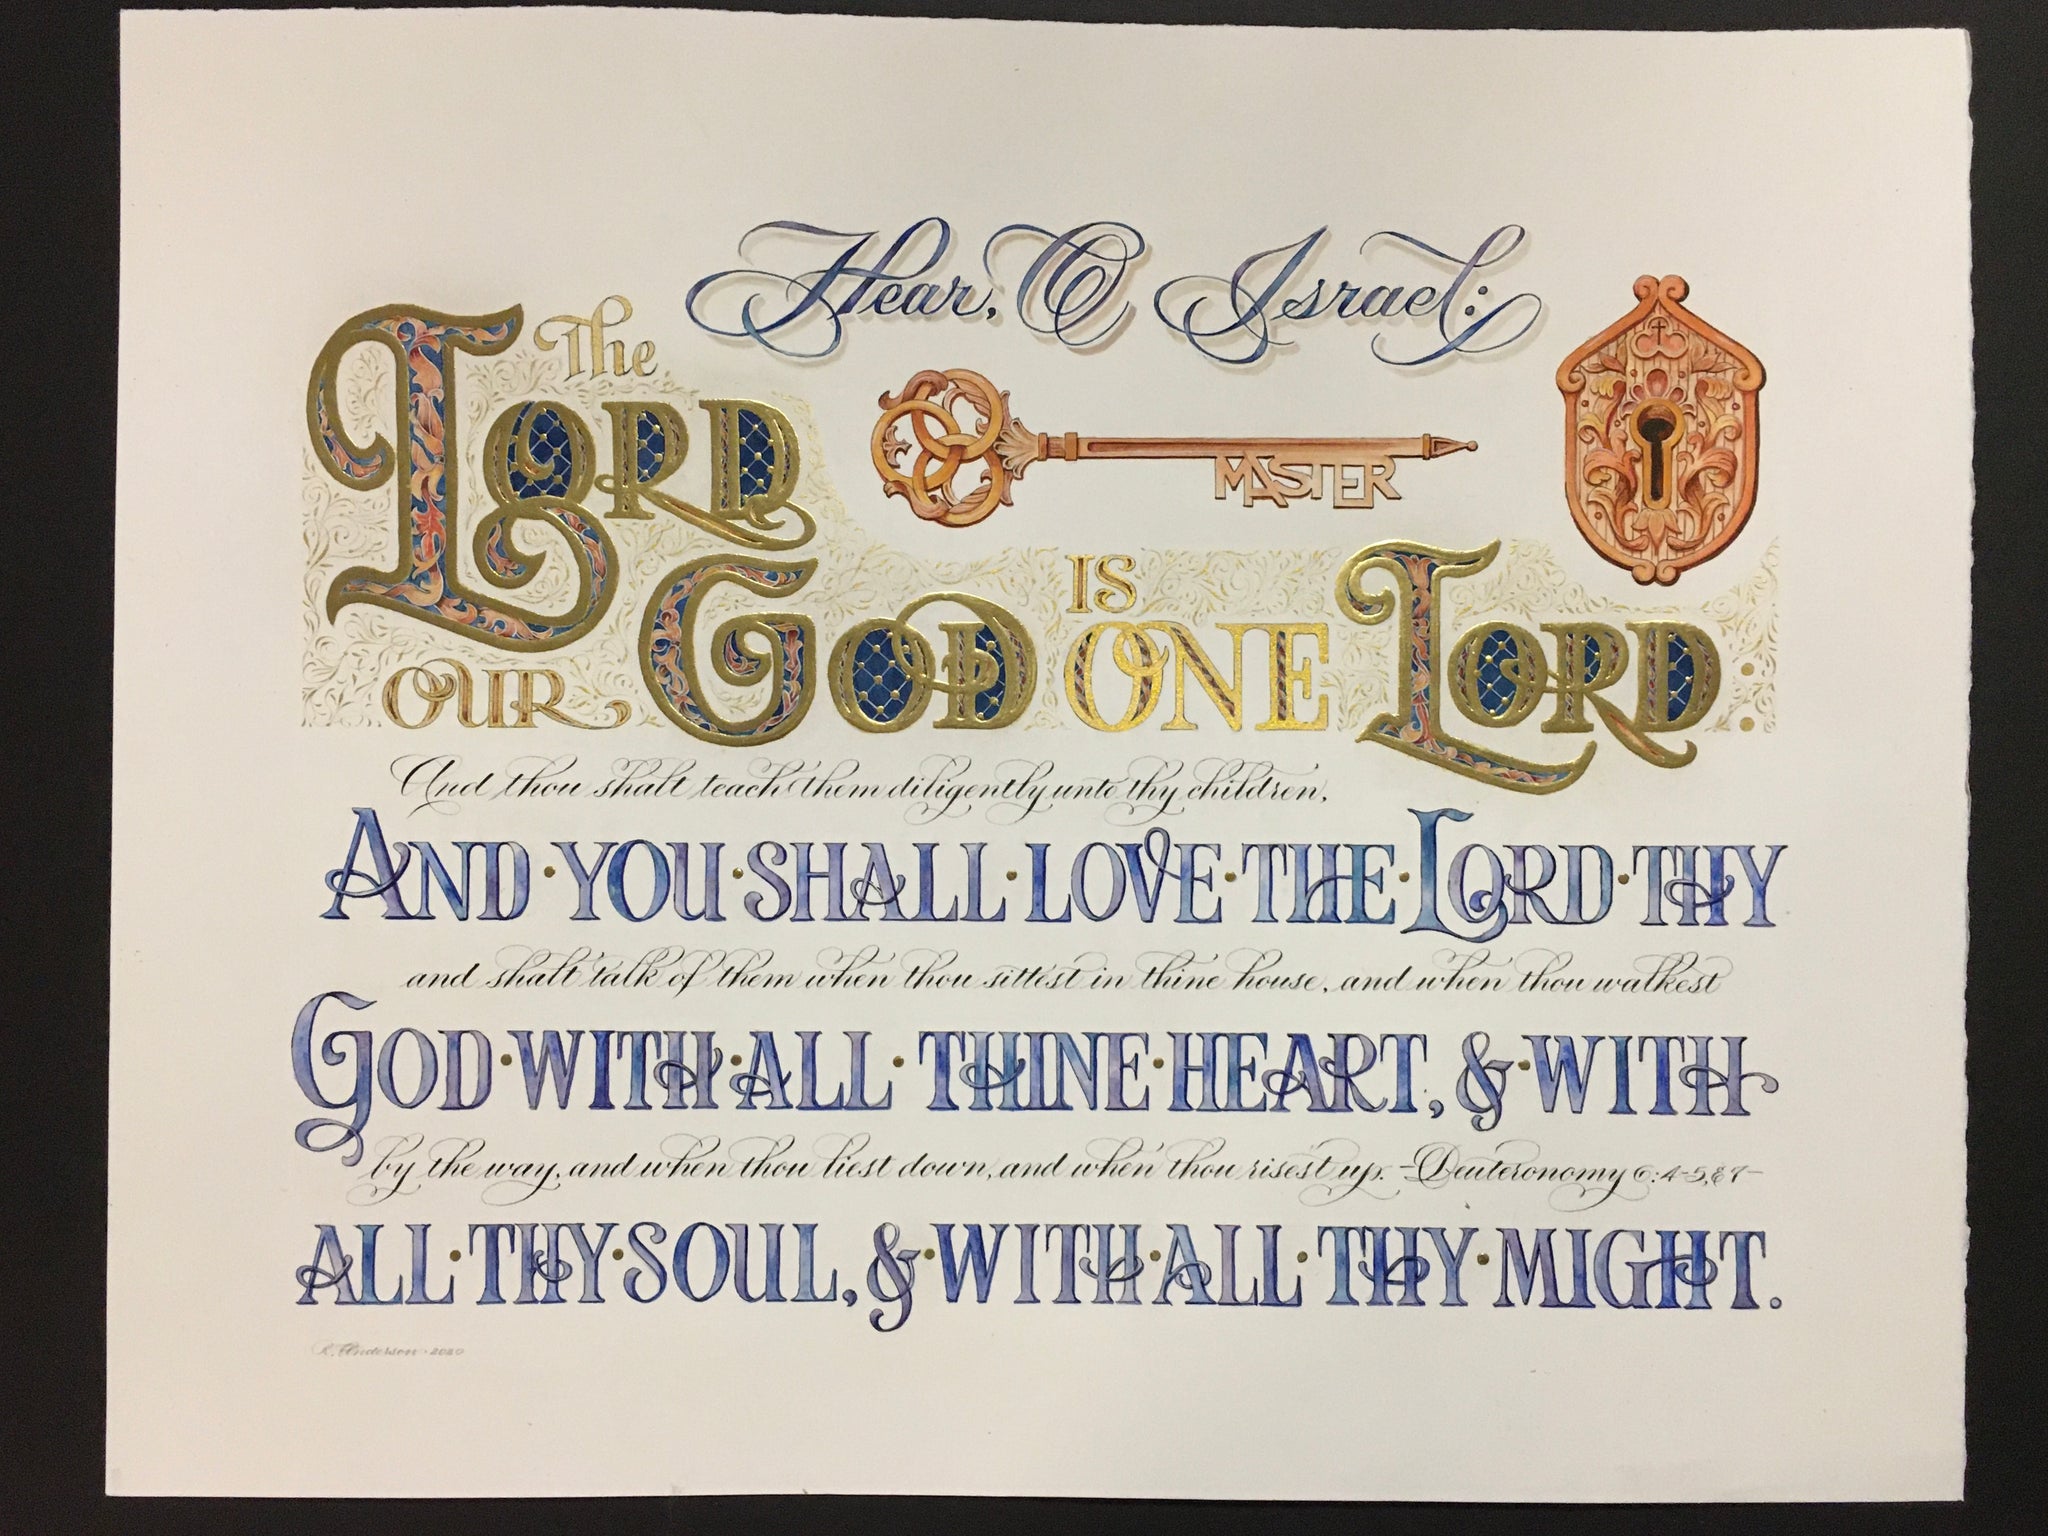 Hear, O Israel:
The
LORD
MASTER
OUR GOD IS ONE LORD:
And thou shalt teach them diligently unto thy children,
AND · YOU · SHALL · LOVE · THE · LORD · THY
and shalt talk of them when thou sittest in thine house, and when thou walkest
GOD · WITH · ALL · THINE · HEART, & · WITH
by the way, and when thou liest down, and when thou risest up. -Deuteronomy 6:4-5,&7-
ALL · THY · SOUL, & · WITH · ALL · THY · MIGHT.
R. Anderson · 2020